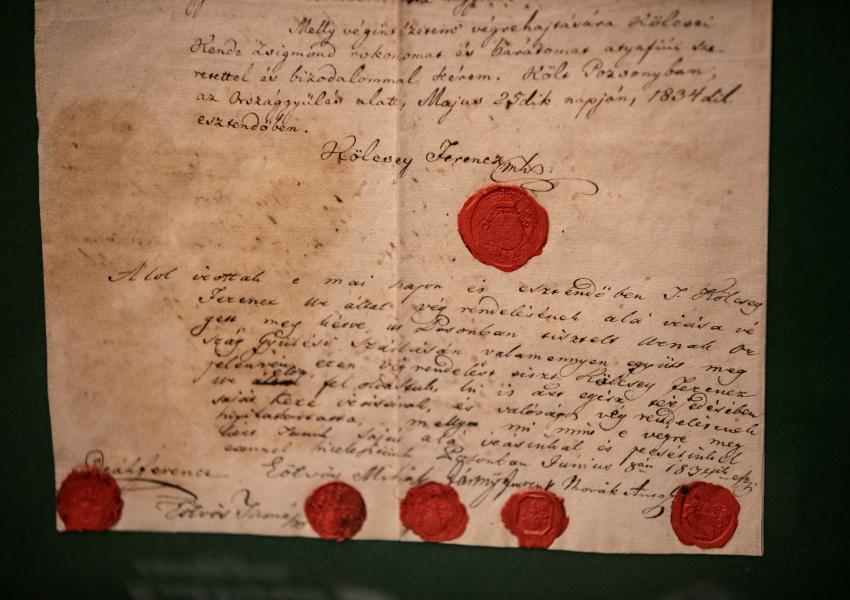 Melly végintézetem végrehajtására Kölcsei
Kende Zsigmond rokonomat és barátomat atyafiúi sze-
retettel és bizodalommal kérem. Költ Pozsonyban,
az Országgyűlés alatt, Majus 25dik napján, 1834dik
esztendőben.
Kölcsey Ferencz mk.
Alol irottak e mai napon és esztendőben T. Kölcsey
Ferencz Ur által vég rendelésének alá irása vé
gett meg kérve, itt Posonban tisztelt Urnak Or
szág Gyülési Szállásán valamennyen együtt meg
jelenvén, ezen végrendelést Kölcsey Ferencz
Ur által fel olvastuk, ki is azt egész terjedésében
saját keze irásának, és valóságos vég rendelésének
mellyet mi mind e végre meg
saját alá irásunkal és pecsétünkel
Posonban Junius 8án 1834
Deák Ferencz
Eötvös Mihály
Novák Antal
Eötvös Tamás